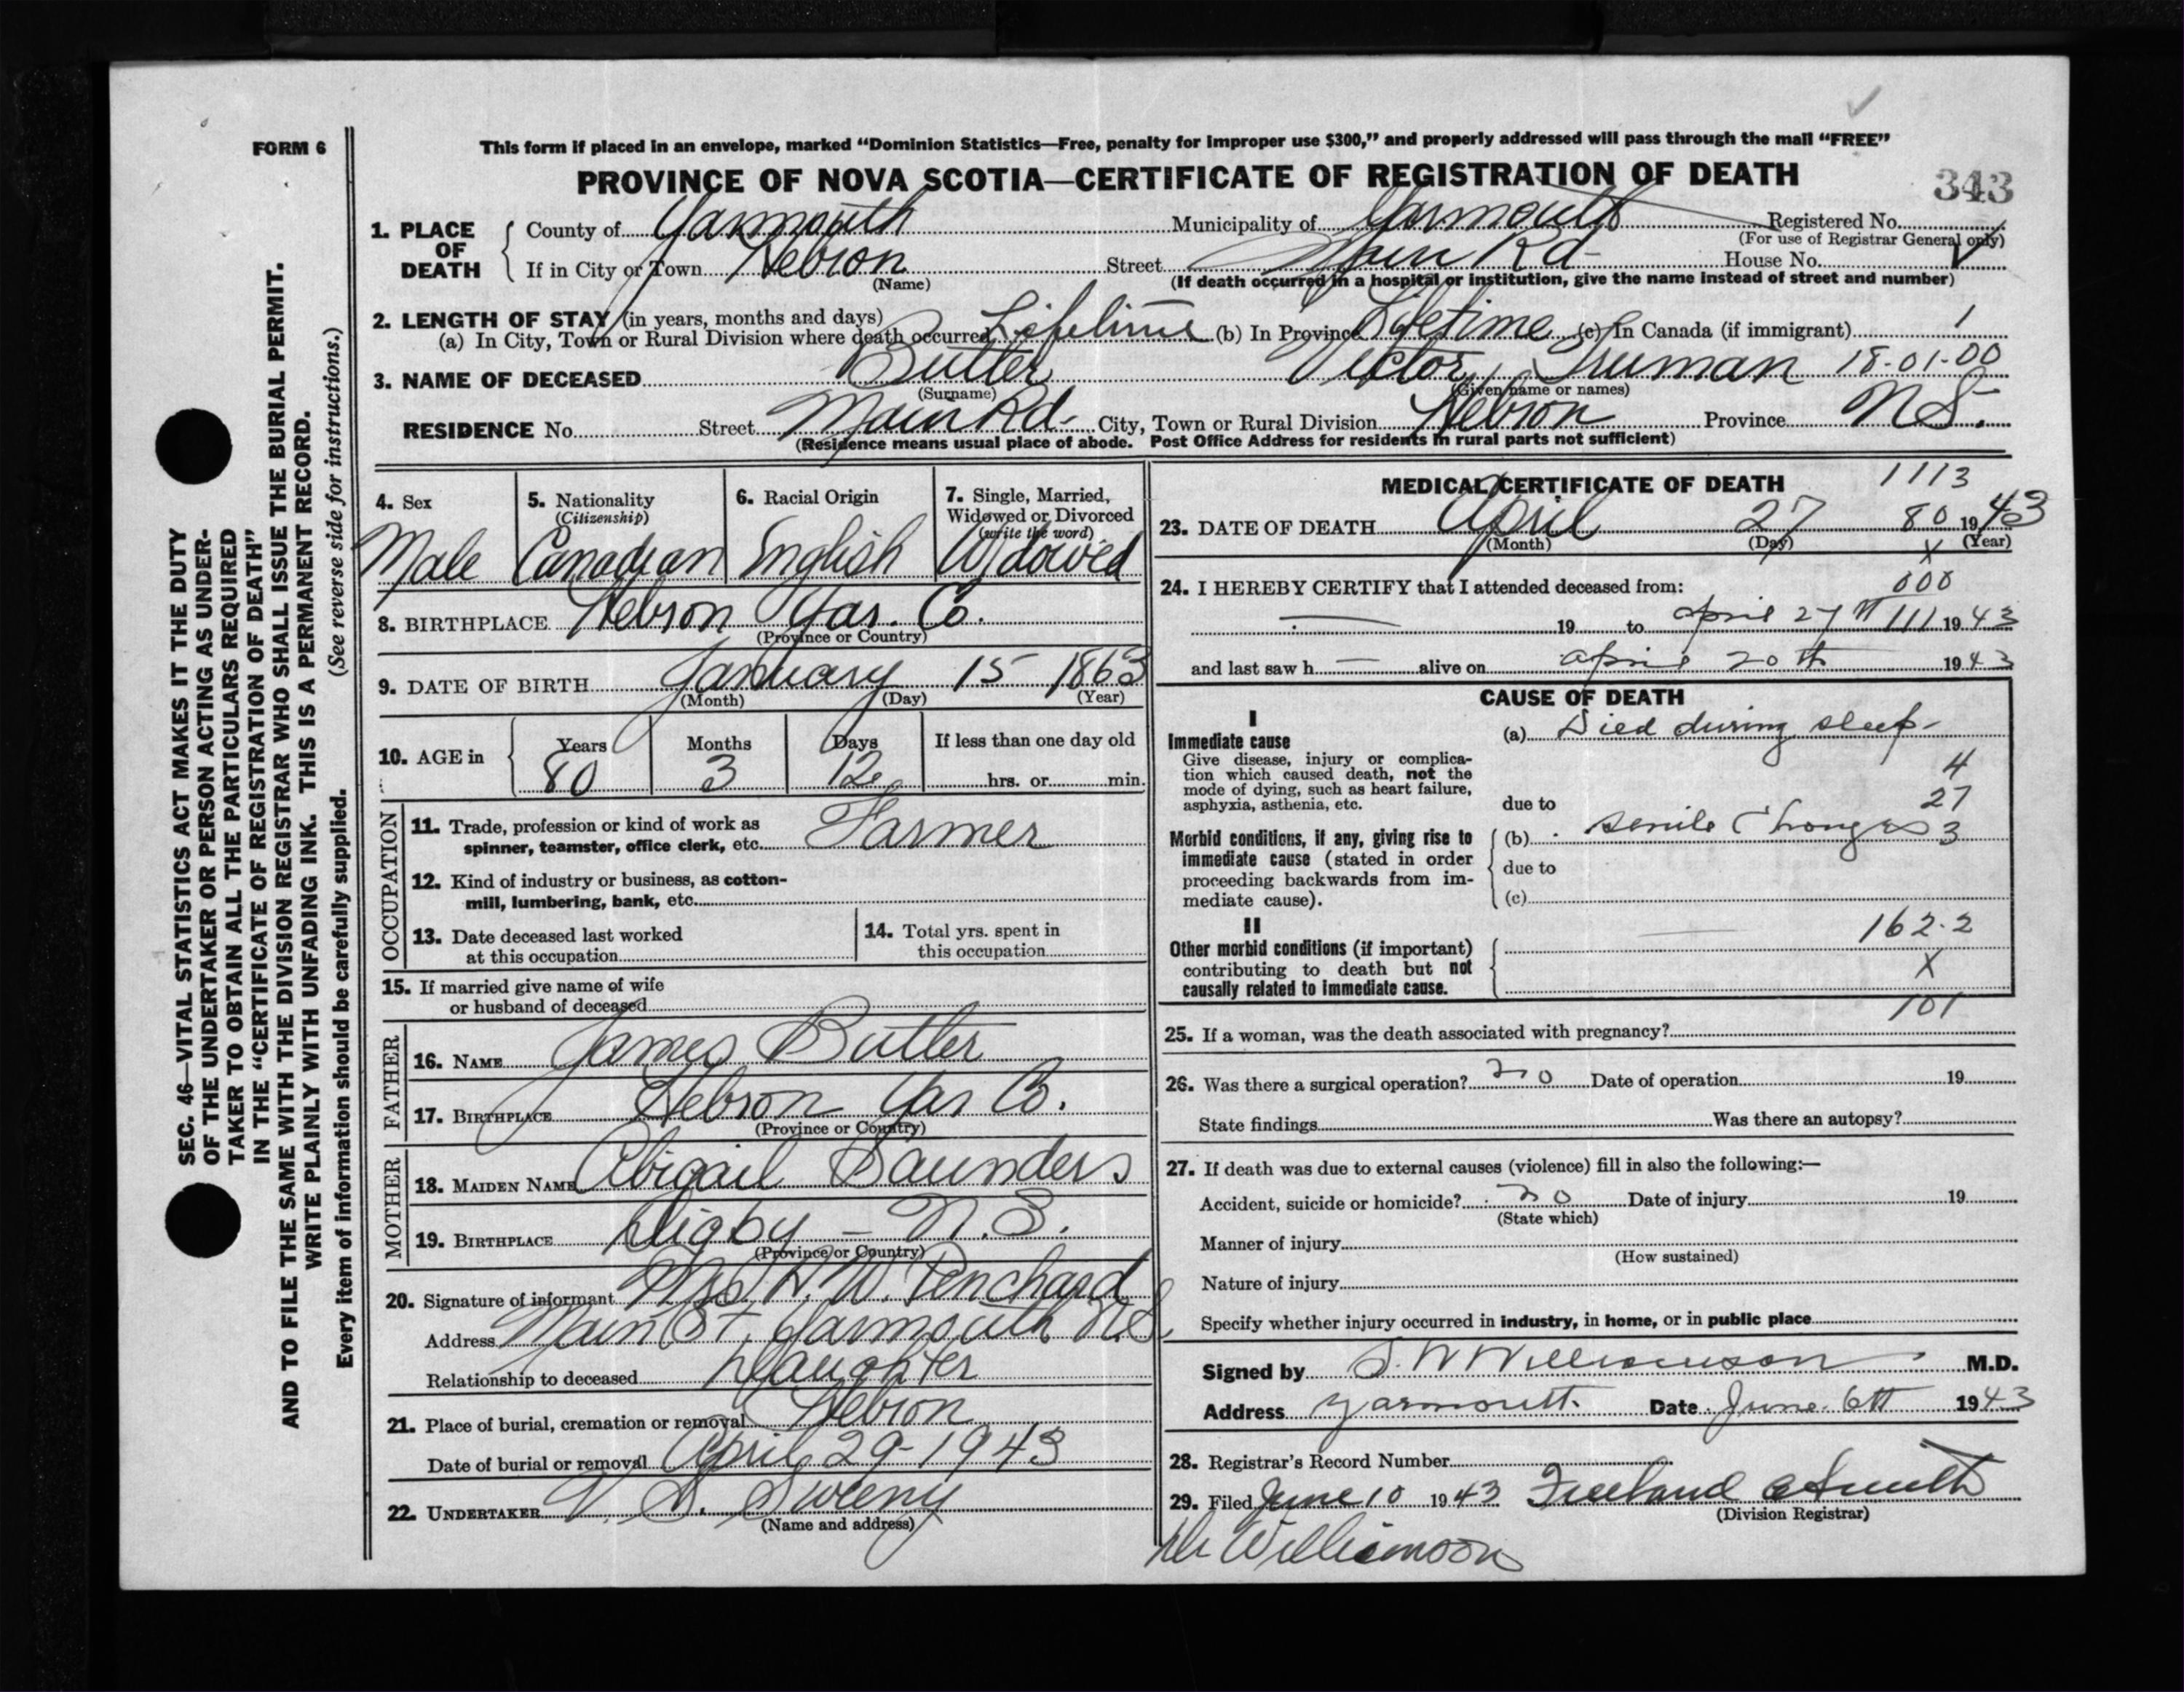 FORM 6
This form if placed in an envelope, marked “Dominion Statistics—Free, penalty for improper use $300,” and properly addressed will pass through the mail “FREE”
PROVINCE OF NOVA SCOTIA—CERTIFICATE OF REGISTRATION OF DEATH
343
1. PLACE OF DEATH
County of Yarmouth Municipality of Yarmouth Registered No.
(For use of Registrar General only)
If in City or Town Hebron Street Main Rd- House No.
(Name) (If death occurred in a hospital or institution, give the name instead of street and number)
2. LENGTH OF STAY (in years, months and days)
(a) In City, Town or Rural Division where death occurred Lifetime (b) In Province Lifetime (c) In Canada (if immigrant) 1
3. NAME OF DECEASED Butler Victor Truman 18-01-00
(Surname) (Given name or names)
RESIDENCE No. Street Main Rd- City, Town or Rural Division Hebron Province N S.
(Residence means usual place of abode. Post Office Address for residents in rural parts not sufficient)
4. Sex
Male
5. Nationality
(Citizenship)
Canadian
6. Racial Origin
English
7. Single, Married,
Widowed or Divorced
(write the word)
Widowed
8. BIRTHPLACE Hebron Yar. Co.
(Province or Country)
9. DATE OF BIRTH January 15 1863
(Month) (Day) (Year)
10. AGE in
Years Months Days If less than one day old
80 3 12 hrs. or min.
OCCUPATION
11. Trade, profession or kind of work as
spinner, teamster, office clerk, etc. Farmer
12. Kind of industry or business, as cotton-
mill, lumbering, bank, etc.
13. Date deceased last worked
at this occupation
14. Total yrs. spent in
this occupation
15. If married give name of wife
or husband of deceased
FATHER
16. NAME James Butler
17. BIRTHPLACE Hebron Yar Co.
(Province or Country)
MOTHER
18. MAIDEN NAME Abigail Saunders
19. BIRTHPLACE Digby - N.S.
(Province or Country)
20. Signature of informant Mrs H. W. Penchard
Address Main St, Yarmouth N.S.
Relationship to deceased Daughter
21. Place of burial, cremation or removal Hebron
Date of burial or removal April 29-1943
22. UNDERTAKER V. S. Sweeny
(Name and address)
MEDICAL CERTIFICATE OF DEATH
1113
23. DATE OF DEATH April 27 80 1943
(Month) (Day) (Year)
X
24. I HEREBY CERTIFY that I attended deceased from:
000
19 to april 27 th 111 1943
and last saw h alive on april 20 th 1943
CAUSE OF DEATH
I
Immediate cause
Give disease, injury or complica-
tion which caused death, not the
mode of dying, such as heart failure,
asphyxia, asthenia, etc.
(a) Died during sleep-
4
27
due to
Morbid conditions, if any, giving rise to
immediate cause (stated in order
proceeding backwards from im-
mediate cause).
(b) senile Changes 3
due to
(c)
II
Other morbid conditions (if important)
contributing to death but not
causally related to immediate cause.
162.2
X
101
25. If a woman, was the death associated with pregnancy?
26. Was there a surgical operation? no Date of operation 19
State findings Was there an autopsy?
27. If death was due to external causes (violence) fill in also the following:—
Accident, suicide or homicide? no Date of injury 19
(State which)
Manner of injury
(How sustained)
Nature of injury
Specify whether injury occurred in industry, in home, or in public place
Signed by S. W Williamson M.D.
Address Yarmouth. Date June 6th 1943
28. Registrar's Record Number
29. Filed June 10 1943 Freeland A Smith
(Division Registrar)
Dr Williamson
SEC. 46—VITAL STATISTICS ACT MAKES IT THE DUTY
OF THE UNDERTAKER OR PERSON ACTING AS UNDER-
TAKER TO OBTAIN ALL THE PARTICULARS REQUIRED
IN THE “CERTIFICATE OF REGISTRATION OF DEATH”
AND TO FILE THE SAME WITH THE DIVISION REGISTRAR WHO SHALL ISSUE THE BURIAL PERMIT.
WRITE PLAINLY WITH UNFADING INK. THIS IS A PERMANENT RECORD.
Every item of information should be carefully supplied. (See reverse side for instructions.)